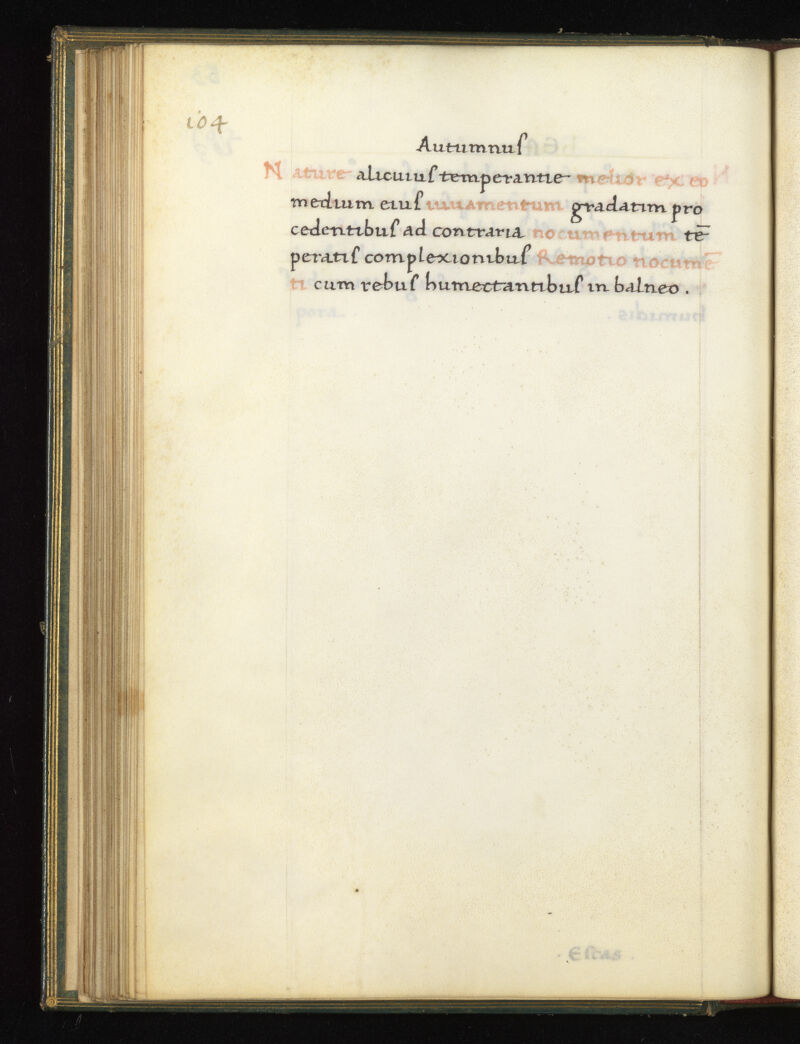 104
Autumnuſ
Nature alicuiuſ temperantie melior ex eo
medium eiuſ iuuamentum gradatim pro
cedentibuſ ad contraria nocumentum tē
peratiſ complexionibuſ Remotio nocumē
ti cum rebuſ humectantibuſ in balneo .
Eſtas